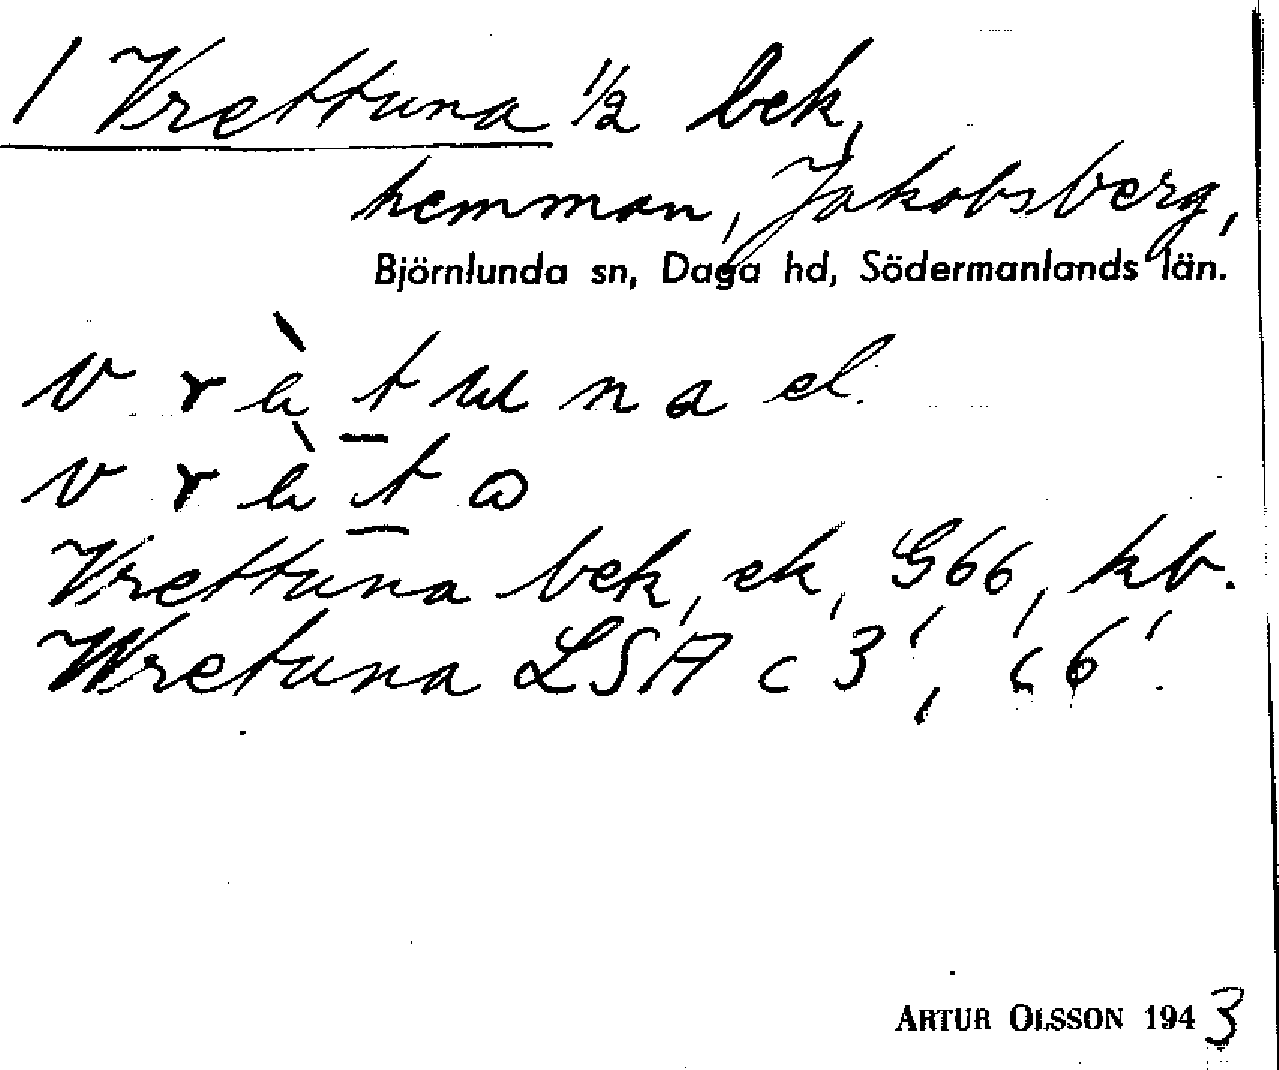 1 Vrettuna 1/2 bek,
hemman, Jakobsberg,
Björnlunda sn, Daga hd, Södermanlands län.
v r ä̀ t u n a el.
v r ä̀ t a
Vrettuna bek, ek, G66, kb.
Wretuna LSA c 3', c 6'.
ARTUR OLSSON 1943